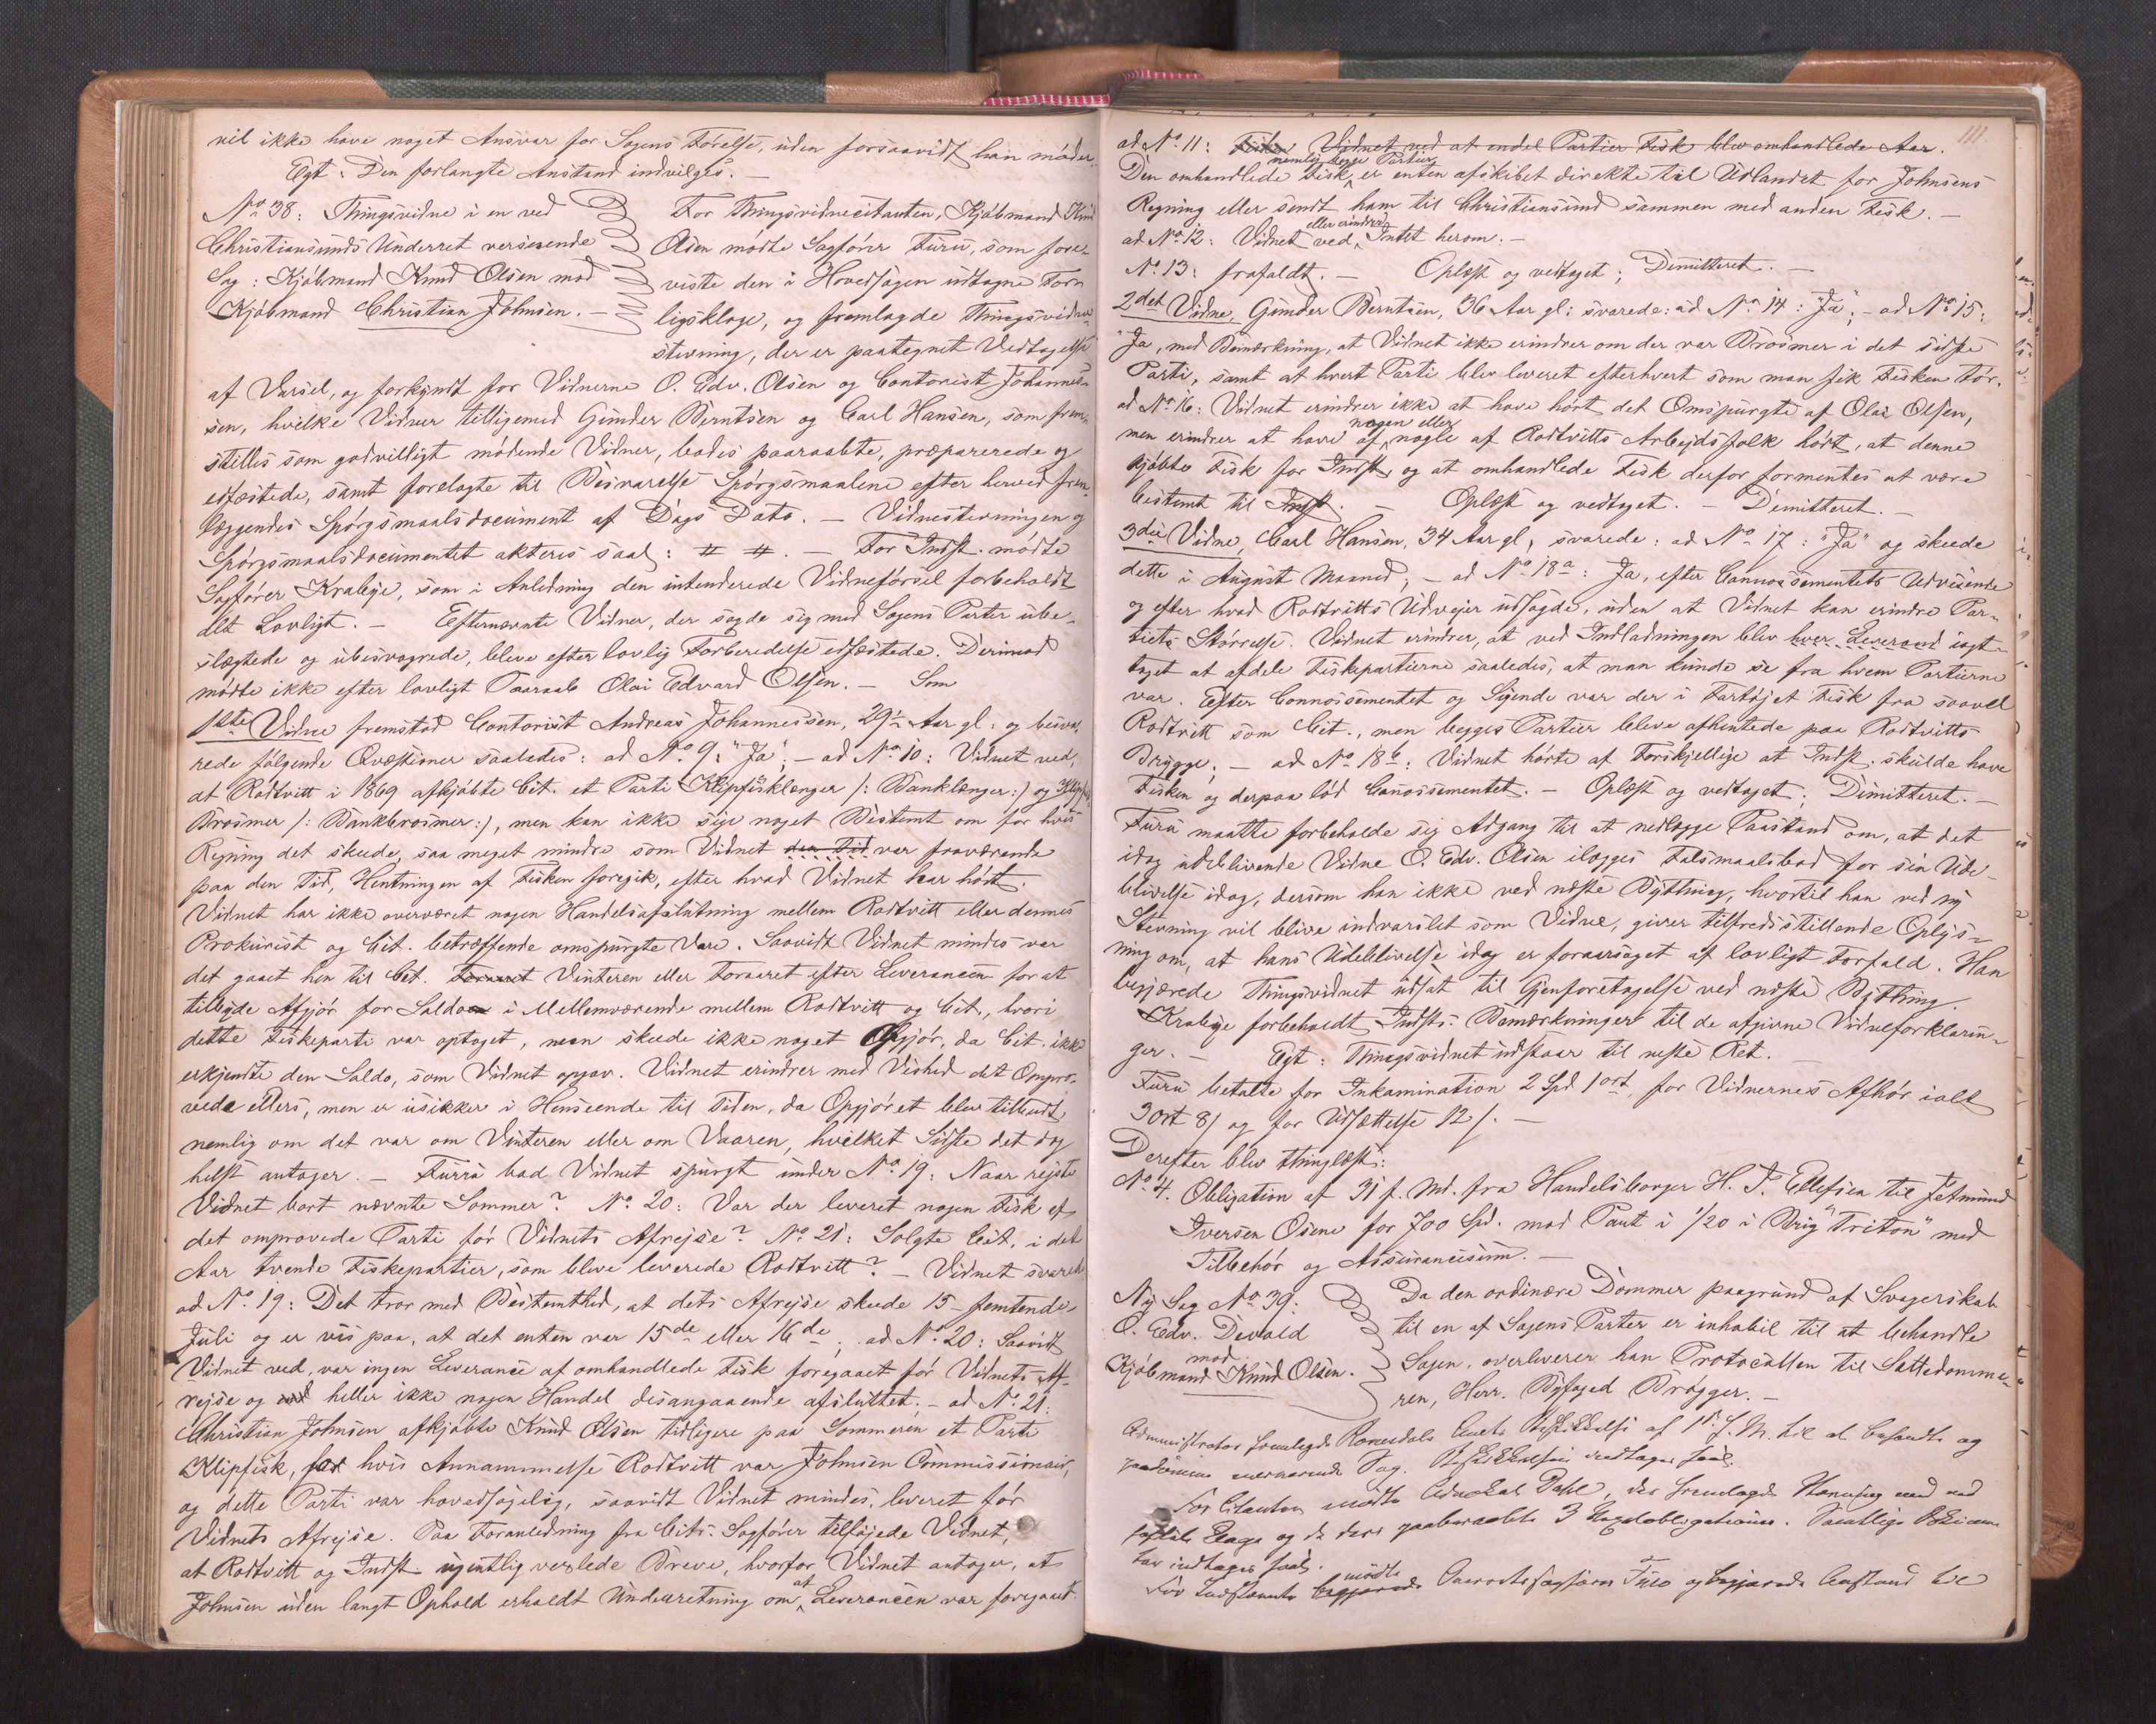 vil ikke have noget Ansvar for Sagens Førelse, uden forsaavidt han møder.
Egt: Den forlangte Anstand indvilges. —
No 38: Thingsvidne i en ved
Christiansunds Underret verserende
Sag: Kjøbmand Knud Olsen mod
Kjøbmand Christian Johnsen. —
For Thingsvidnecitanten, Kjøbmand Knud
Olsen mødte Sagfører Furu, som fore-
viste den i Hovedsagen udtagne For-
ligsklage, og fremlagde Thingsvidne-
stevning, der er paategnet Vedtagelse
af Varsel, og forkyndt for Vidnerne O. Edv. Olsen og Contorist Johannes-
sen, hvilke Vidner tilligemed Gunder Berntsen og Carl Hansen, som frem-
stilles som godvilligt mødende Vidner, bades paaraabte, præparerede og
edfæstede, samt forelagte til Besvarelse Spørgsmaalene efter herved frem-
læggendes Spørgsmaalsdocument af Dags Dato. — Vidnestevningen og
Spørgsmaalsdocumentet akteres saal: # #. — For Indst. mødte
Sagfører Krabye, som i Anledning den intenderede Vidneførsel forbeholdt
alt Lovligt. — Efternævnte Vidner, der sagde sig med Sagens Parter ube-
slægtede og ubesvogrede, bleve efter lovlig Forberedelse edfæstede. Derimod
mødte ikke efter lovligt Paaraab Olai Edvard Olsen. — Som
1ste Vidne fremstod Contorist Andreas Johannessen, 29½ Aar gl. og besva-
rede følgende Qvæstioner saaledes: ad No 9: "Ja"; — ad No 10: Vidnet ved,
at Rodtvitt i 1869 afkjøbte Cit. et Parti Klipfisklænger /: Banklænger :/ og Klipf.
Brosmer /: Bankbrosmer :/, men kan ikke sige noget Bestemt om for hvis
Regning det skeede, saa meget mindre som Vidnet den Tid var fraværende
paa den Tid, Hentningen af Fisken foregik, efter hvad Vidnet har hørt.
Vidnet har ikke overværet nogen Handelsafslutning mellem Rodtvitt eller dennes
Prokurist og Cit. betræffende omspurgte Vare. Saavidt Vidnet mindes var
det gaaet hen til Cit. Foraaret Vinteren eller Foraaret efter Leverancen for at
tilbyde Afgjør for Saldoen i Mellemværende mellem Rodtvitt og Cit., hvori
dette Fiskeparti var optaget, men skeede ikke noget Opgjør, da Cit. ikke
erkjendte den Saldo, som Vidnet opgav. Vidnet erindrer med Vished det Ompro-
vede ellers, men er usikker i Henseende til Tiden, da Opgjøret blev tilbudt,
nemlig om det var om Vinteren eller om Vaaren, hvilket Sidste det dog
helst antager. — Furu bad Vidnet spurgt under No 19: Naar rejste
Vidnet bort nævnte Sommer? No 20: Var der leveret nogen Fisk af
det omprovede Parti før Vidnets Afrejse? No 21: Solgte Cit. i det
Aar tvende Fiskepartier, som bleve leverede Rodtvitt? — Vidnet svarede
ad No 19: Det tror med Bestemthed, at dets Afrejse skeede 15 – femtende –
Juli og er vis paa, at det enten var 15de eller 16de; ad No 20: Saavidt
Vidnet ved, var ingen Leverance af omhandlede Fisk foregaaet før Vidnets Af-
rejse og ved heller ikke nogen Handel desangaaende afsluttet; — ad No 21:
Christian Johnsen afkjøbte Knud Olsen tidligere paa Sommeren et Parti
Klipfisk, for hvis Annammelse Rodtvitt var Johnsen Commissionair,
og dette Parti var hovedsagelig, saavidt Vidnet mindes, leveret før
Vidnets Afrejse. Paa Foranledning fra Cits. Sagfører tilføjede Vidnet,
at Rodtvitt og Indst. ugentlig vexlede Breve, hvorfor Vidnet antager, at
Johnsen uden langt Ophold erholdt Underretning om at Leverancen var foregaaet.
111
ad No 11: Fisken Vidnet ved at endel Partier Fisk blev omhandlede Aar.
Den omhandlede Fisk, nemlig begge Partier, er enten afskibet direkte til Udlandet for Johnsens
Regning eller sendt ham til Christiansund sammen med anden Fisk. —
ad No 12: Vidnet ved eller erindrer Intet herom: —
No 13: frafaldt. — Oplæst og vedtaget; Dimitteret. —
2det Vidne, Gunder Berntsen, 36 Aar gl: svarede: ad No 14: "Ja"; — ad No 15:
"Ja, med Bemærkning, at Vidnet ikke erindrer om der var Brosmer i det sidste
Parti, samt at hvert Parti blev leveret efterhvert som man fik Fisken tør.
ad No 16: Vidnet erindrer ikke at have hørt det Omspurgte af Olai Olsen,
men erindrer at have af nogen eller nogle af Rodtvitts Arbejdsfolk hørt, at denne
kjøbte Fisk for Indst. og at omhandlede Fisk derfor formentes at være
bestemt til Indst. — Oplæst og vedtaget. — Dimitteret. —
3die Vidne, Carl Hansen, 34 Aar gl, svarede: ad No 17: "Ja" og skeede
dette i August Maaned; — ad No 18a: Ja, efter Connossementets Udvisende
og efter hvad Rodtvitts Udvejer udsagde, uden at Vidnet kan erindre Par-
tiets Størrelse. Vidnet erindrer, at ved Indladningen blev hver Leverand iagt-
taget at afdele Fiskepartierne saaledes, at man kunde se fra hvem Partierne
var. Efter Connossementet og Sigende var der i Fartøjet Fisk fra saavel
Rodtvitt som Cit., men begges Partier bleve afhentede paa Rodtvitts
Brygge; — ad No 18b: Vidnet hørte af Forskjellige at Indst. skulde have
Fisken og derpaa lød Canossementet. — Oplæst og vedtaget; Dimitteret. —
Furu maatte forbeholde sig Adgang til at nedlægge Paastand om, at det
idag udeblivende Vidne O. Edv. Olsen ilægges Falsmaalsbod for sin Ude-
blivelse idag, dersom han ikke ved næste Bything, hvortil han ved ny
Stevning vil blive indvarslet som Vidne, giver tilfredsstillende Oplys-
ning om, at hans Udeblivelse idag er foraarsaget af lovligt Forfald. Han
begjærede Thingsvidnet udsat til Gjenforetagelse ved næste Bything.
Krabye forbeholdt Indsts. Bemærkninger til de afgivne Vidneforklarin-
ger. — Egt: Thingsvidnet udstaar til neste Ret. —
Furu betalte for Inkamination 2 Spd 1 ort, for Vidnernes Afhør ialt
3 ort 8 / og for Udsættelse 12 /. —
Derefter blev thinglæst:
No 4. Obligation af 31 f. Md. fra Handelsborger H. P. Ellefsen til Jetmund
Iversen Osene for 700 Spd. mod Pant i 1/20 i Brig "Triton" med
Tilbehør og Assurancesum. —
Ny Sag No 39:
O. Edv. Devold
mod
Kjøbmand Knud Olsen.
Da den ordinære Dommer paagrund af Svogerskab
til en af Sagens Parter er inhabil til at behandle
Sagen, overleverer han Protocollen til Sættedomme-
ren, Herr. Byfoged Brøgger. —
Administrator fremlagde Romsdals Amts Beskikkelse af 1ste f. M. til at behandle og
paadømme nærværende Sag. Beskikkelsen indtages saal.
For Citanten mødte Advokat Dahl, der fremlagde Stevning med
Klage og de deri paaberaabte 3
indtages saal.
For Indstevnte begjærede mødte Overretssagfører Thio og begjærede Anstand til